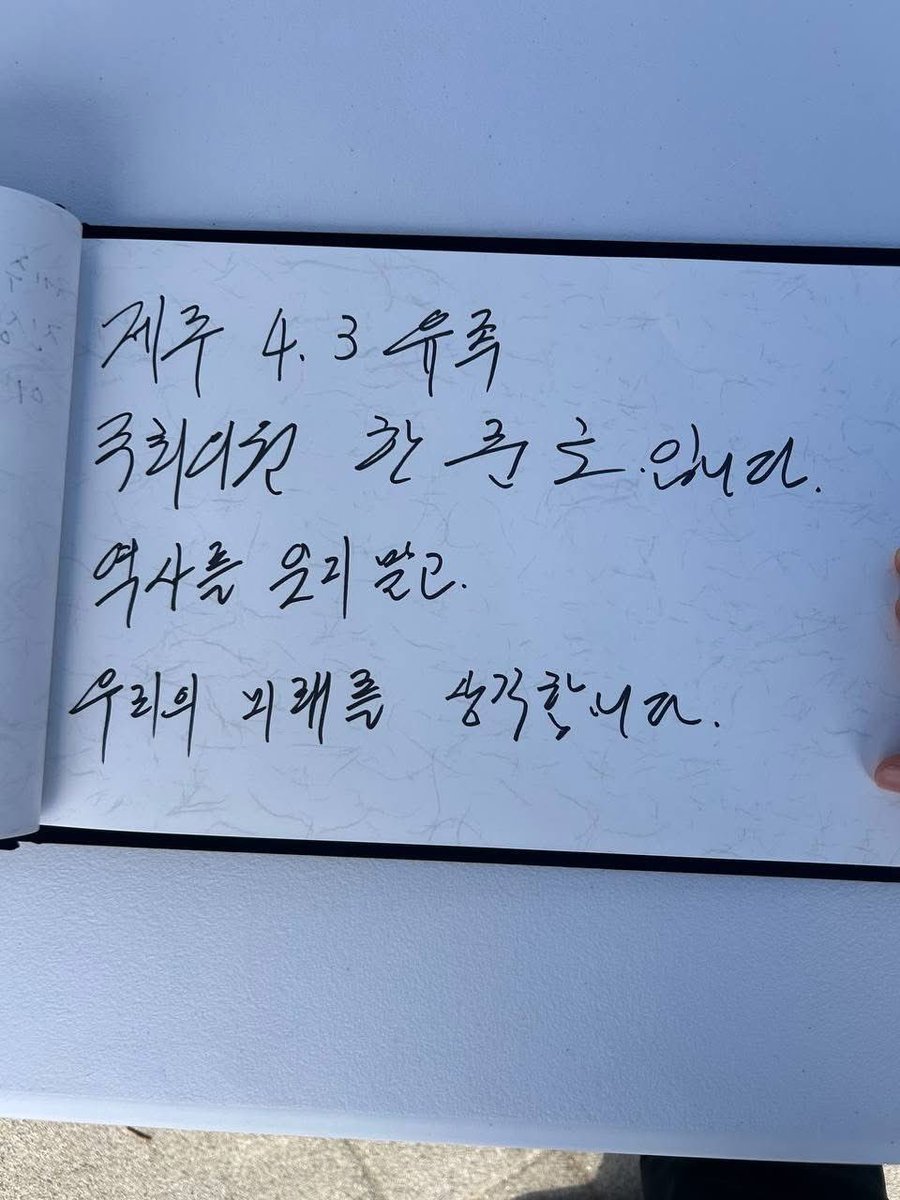 제주 4.3 유족
국회의원 한준호입니다.
역사를 우리말고.
우리의 미래를 생각합니다.